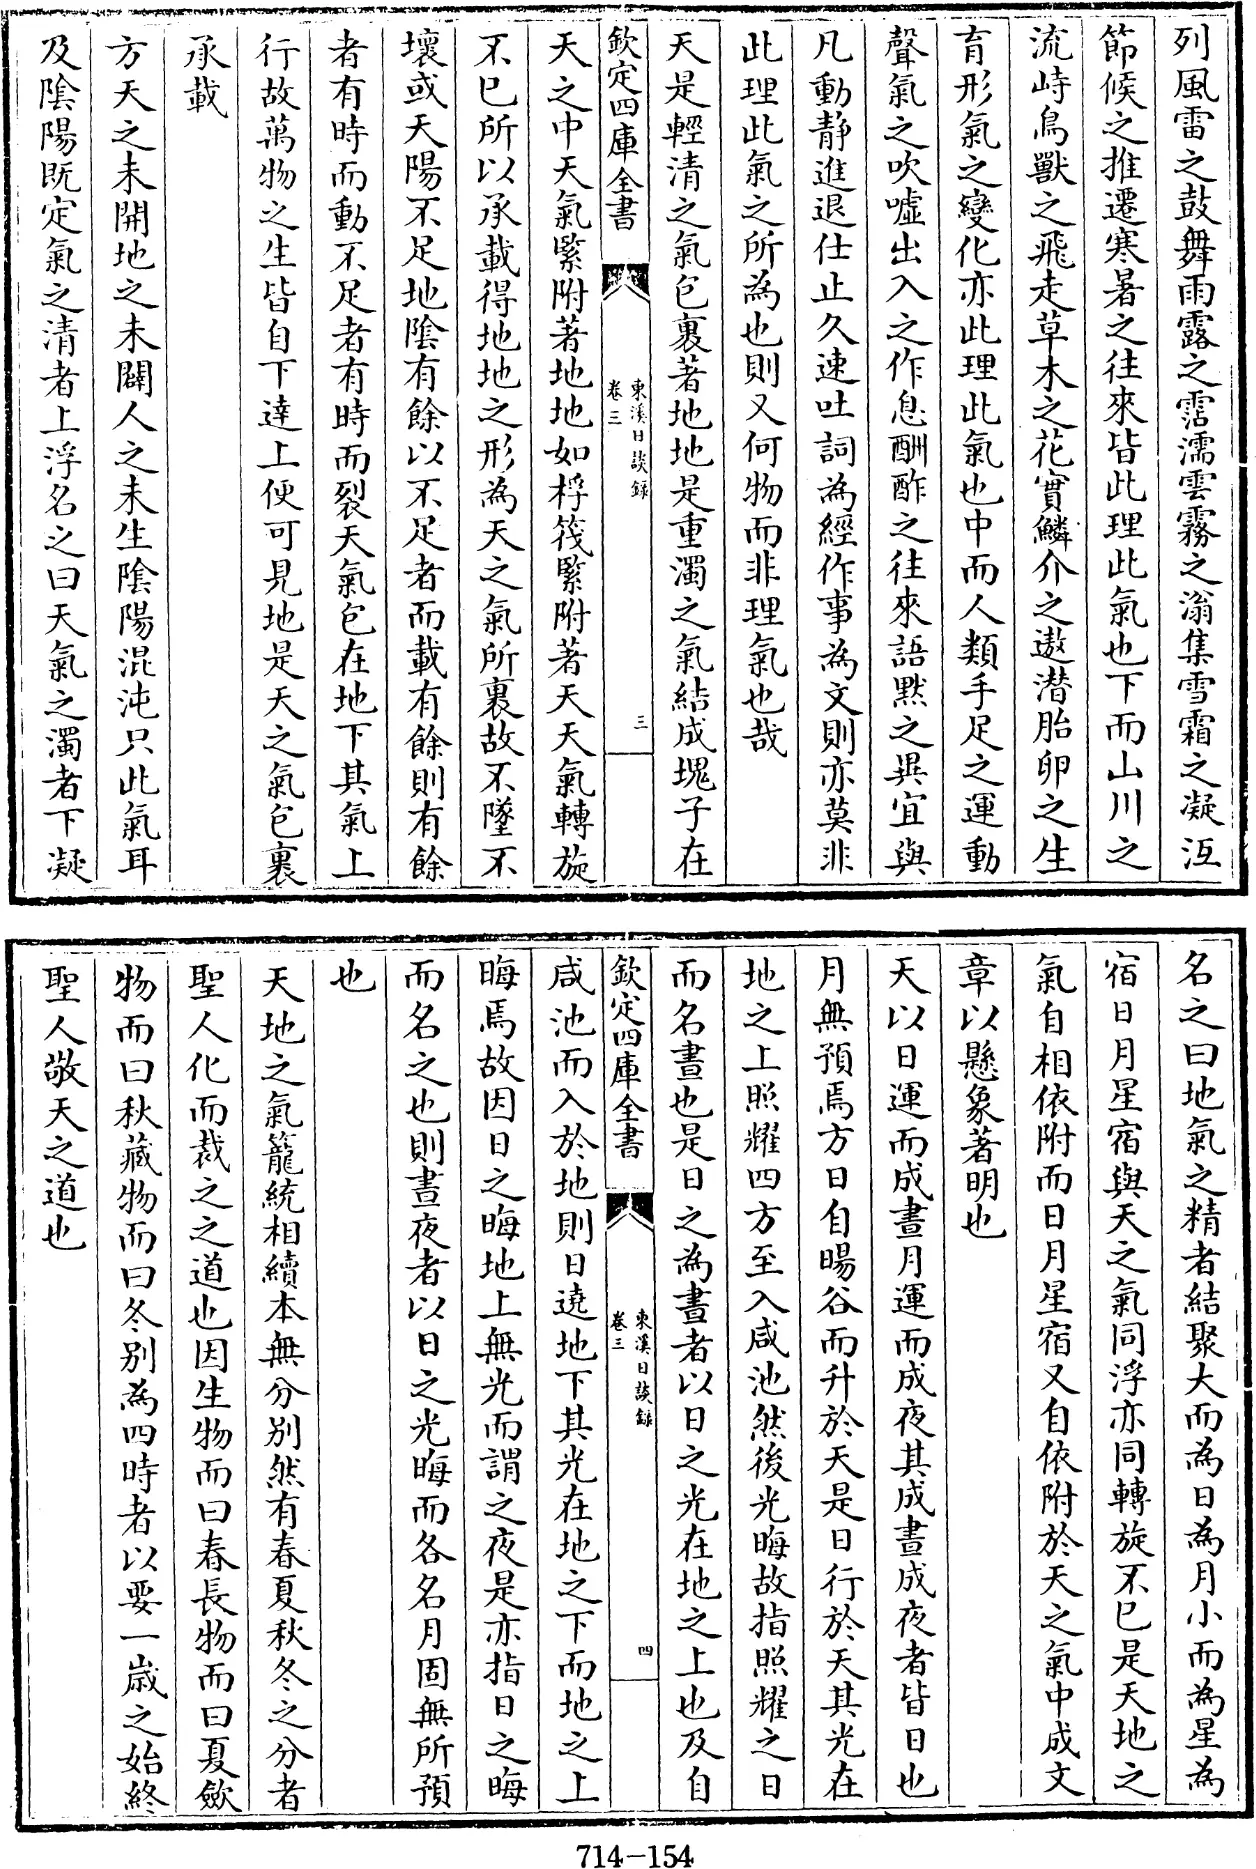 列風雷之鼓舞雨露之霑濡雲霧之滃集雪霜之凝沍
節候之推遷寒暑之往來皆此理此氣也下而山川之
流峙鳥獸之飛走草木之花實鱗介之遨潛胎卵之生
育形氣之變化亦此理此氣也中而人類手足之運動
聲氣之吹噓出入之作息酬酢之往來語默之異宜與
凡動靜進退仕止久速吐詞為經作事為文則亦莫非
此理此氣之所為也則又何物而非理氣也哉
天是輕清之氣包裹著地地是重濁之氣結成塊子在
欽定四庫全書
東溪日談錄
卷三
三
天之中天氣緊附著地地如桴筏緊附著天天氣轉旋
不已所以承載得地地之形為天之氣所裹故不墜不
壞或天陽不足地陰有餘以不足者而載有餘則有餘
者有時而動不足者有時而裂天氣包在地下其氣上
行故萬物之生皆自下達上便可見地是天之氣包裹
承載
方天之未開地之未闢人之未生陰陽混沌只此氣耳
及陰陽既定氣之清者上浮名之曰天氣之濁者下凝
名之曰地氣之精者結聚大而為日為月小而為星為
宿日月星宿與天之氣同浮亦同轉旋不已是天地之
氣自相依附而日月星宿又自依附於天之氣中成文
章以懸象著明也
天以日運而成晝月運而成夜其成晝成夜者皆日也
月無預焉方日自暘谷而升於天是日行於天其光在
地之上照耀四方至入咸池然後光晦故指照耀之日
而名晝也是日之為晝者以日之光在地之上也及自
欽定四庫全書
東溪日談錄
卷三
四
咸池而入於地則日遶地下其光在地之下而地之上
晦焉故因日之晦地上無光而謂之夜是亦指日之晦
而名之也則晝夜者以日之光晦而各名月固無所預
也
天地之氣籠統相續本無分別然有春夏秋冬之分者
聖人化而裁之之道也因生物而曰春長物而曰夏斂
物而曰秋藏物而曰冬別為四時者以要一歲之始終
聖人敬天之道也
714-154